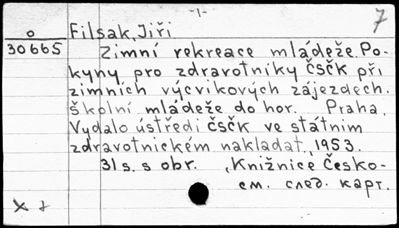 -1-
7
o
Filsak, Jiří
30665
Zimní rekreace mládeže. Po-
kyny pro zdravotníky ČSČK při
zimních výcvikových zájezdech.
školní mládeže do hor. Praha,
Vydalo ústředí ČSČK ve státním
zdravotnickém nakladat, 1953.
31 s. s obr. „Knižnice Česko-
см. след. карт.